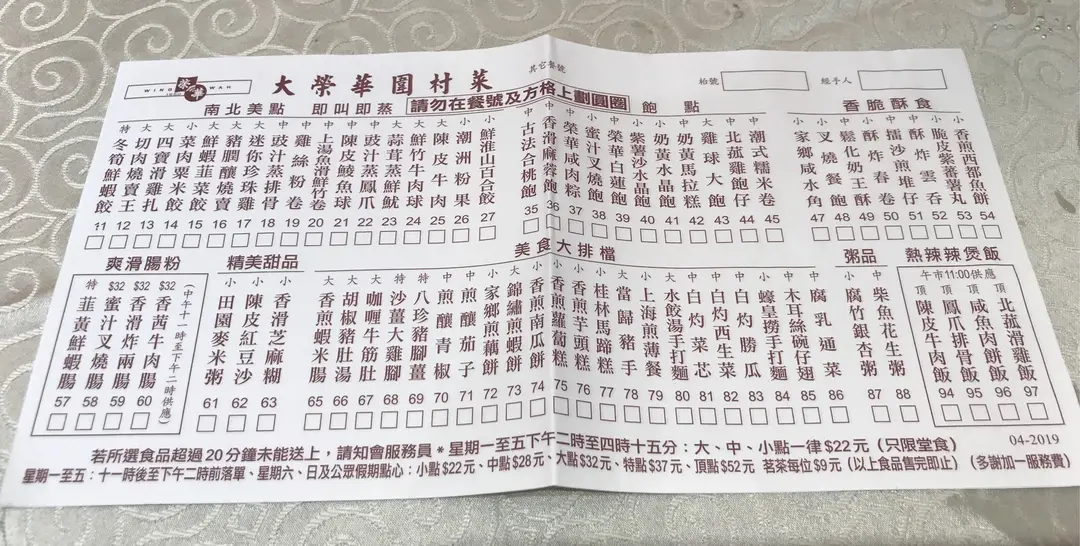 其它餐號
榮華
WING WAH
大榮華圍村菜
枱號
經手人
南北美點 即叫即蒸
請勿在餐號及方格上劃圓圈
飽點
香脆酥食
冬筍鮮蝦餃 11
切肉燒賣王 12
四寶滑雞扎 13
菜肉粟米餃 14
鮮蝦韮菜餃 15
豬膶燒賣 16
迷你珍珠雞 17
豉汁蒸排骨 18
雞絲粉卷 19
上湯魚滑鮮竹卷 20
陳皮鯪魚球 21
豉汁蒸鳳爪 22
蒜茸蒸鮮魷 23
鮮竹牛肉球 24
陳皮牛肉 25
潮洲粉果 26
鮮淮山百合餃 27
古法合桃飽 35
香滑麻蓉飽 36
榮華咸肉粽 37
蜜汁叉燒飽 38
榮華白蓮飽 39
紫薯沙水晶飽 40
奶黃水晶飽 41
奶黃馬拉糕 42
雞球大飽 43
北菰雞飽仔 44
潮式糯米卷 45
家鄉咸水角 47
叉燒餐飽 48
鬆化奶王酥 49
酥炸春卷 50
擂沙煎堆仔 51
酥炸雲吞 52
脆皮紫蕃薯丸 53
香煎西都魚餅 54
爽滑腸粉
特 韮黃鮮蝦腸 57
$32 蜜汁叉燒腸 58
$32 香滑炸兩腸 59
$32 香茜牛肉腸 60
(中午十一時至下午二時供應)
精美甜品
小 田園麥米粥 61
小 陳皮紅豆沙 62
小 香滑芝麻糊 63
美食大排檔
香煎蝦米腸 65
胡椒豬肚湯 66
咖喱牛筋肚 67
沙薑大雞腳 68
八珍豬腳薑 69
煎釀青椒 70
煎釀茄子 71
家鄉煎藕餅 72
錦繡蝦餅 73
香煎南瓜餅 74
香煎蘿蔔糕 75
香煎芋頭糕 76
桂林馬蹄糕 77
當歸豬手 78
上海煎薄餐 79
水餃湯手打麵 80
白灼菜芯 81
白灼西生菜 82
白灼勝瓜 83
蠔皇撈手打麵 84
木耳絲碗仔翅 85
腐乳通菜 86
粥品
小 腐竹銀杏粥 87
中 柴魚花生粥 88
熱辣辣煲飯
午市11:00供應
頂 陳皮牛肉飯 94
頂 鳳爪排骨飯 95
頂 咸魚肉餅飯 96
頂 北菰滑雞飯 97
若所選食品超過20分鐘未能送上，請知會服務員＊星期一至五下午二時至四時十五分：大、中、小點一律$22元（只限堂食）
04-2019
星期一至五：十一時後至下午二時前落單、星期六、日及公眾假期點心：小點$22元、中點$28元、大點$32元、特點$37元、頂點$52元 茗茶每位$9元（以上食品售完即止）（多謝加一服務費）